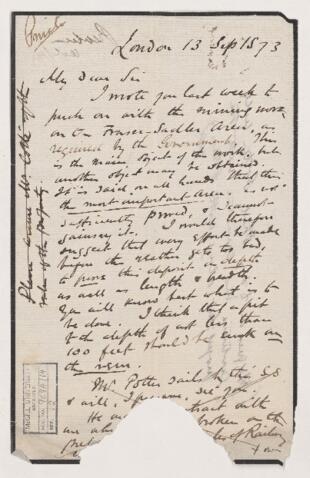 Private
London 13 Sept 1873
My dear Sir
I wrote you last week to
push on with the mining work
on the Fraser-Sadler Area, as
required by the Government. This
is the main object of the work, but
another object may be obtained.
It is said on all hands that the
the most important Area, is not
sufficiently proved, &
I would therefore
suggest that every effort be made
before the weather gets too bad,
to prove this deposit in depth
as well as length & breadth.
You will know best what is to
be done. I think that a pit
to the depth of not less than
100 feet should be sunk on
the vein.
Mr. Potter sails by the
& will, I presume, see you.
He
broken on the
of Railway
Please
value of the property